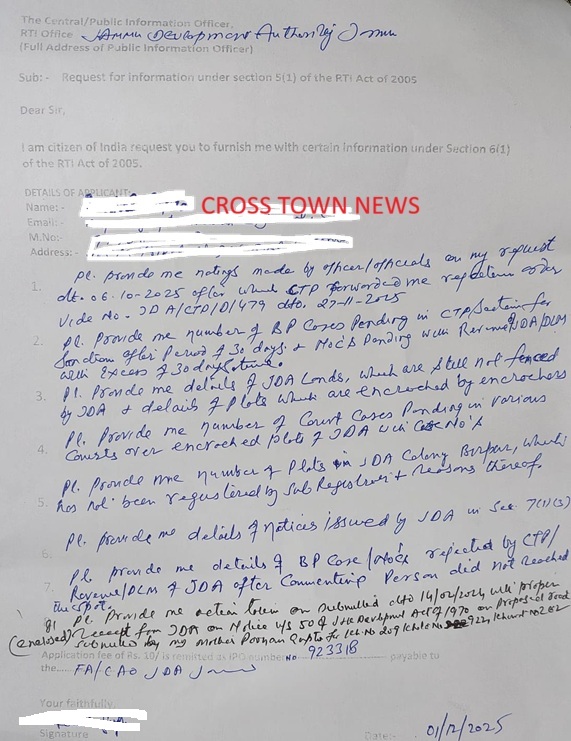 The Central/Public Information Officer,
RTI Office JAMMU DEVELOPMENT Authority Jammu
(Full Address of Public Information Officer)
Sub: - Request for information under section 5(1) of the RTI Act of 2005
Dear Sir,
I am citizen of India request you to furnish me with certain information under Section 6(1)
of the RTI Act of 2005.
DETAILS OF APPLICANT:
Name: -
CROSS TOWN NEWS
Email: -
M.No:-
Address: -
1. Pl. provide me notings made by officer/officials on my request
dt. 06.10-2025 after which CTP forwarded me rejection order
Vide No. JDA/CTP/D/479 dtd. 27-11-2025
2. Pl. Provide me number of BP Cases Pending in CTP/Section for
Sanction after Period of 30 days & NOC's Pending with Revenue/JDA/DLM
with Excess of 30 days time.
3. Pl. Provide me details of JDA Lands, which are still not fenced
by JDA & details of Plots which are encroched by encrochers
4. Pl. Provide me number of Court Cases Pending in various
Courts over encroched plots of JDA with Case No's
5. Pl. Provide me number of Plots in JDA Colony Birpur, which
has not been regustered by Sub Registrar & reasons thereof.
6. Pl. provide me details of notices issued by JDA in Sec 7(1)(3)
7. Pl. provide me details of BP Case/Noc's rejected by CTP/
Revenue/DLM of JDA after Commenting Person did not reached
the spot.
8) Pl. Provide me action taken on submitted dtd 14/02/2024 with proper
(enclosed) Receipt from JDA on Notice u/s 50 of J&K Devlpment Act of 1970 on Proposal Road
submitted by my mother Poonam Gupta for Kh. No 209 Khata No 922, Khewat No 262
Application fee of Rs. 10/ is remitted as IPO number No 923318 payable to
the..... FA/CAO JDA Jammu
Your faithfully,
Signature
Date:- 01/12/2025